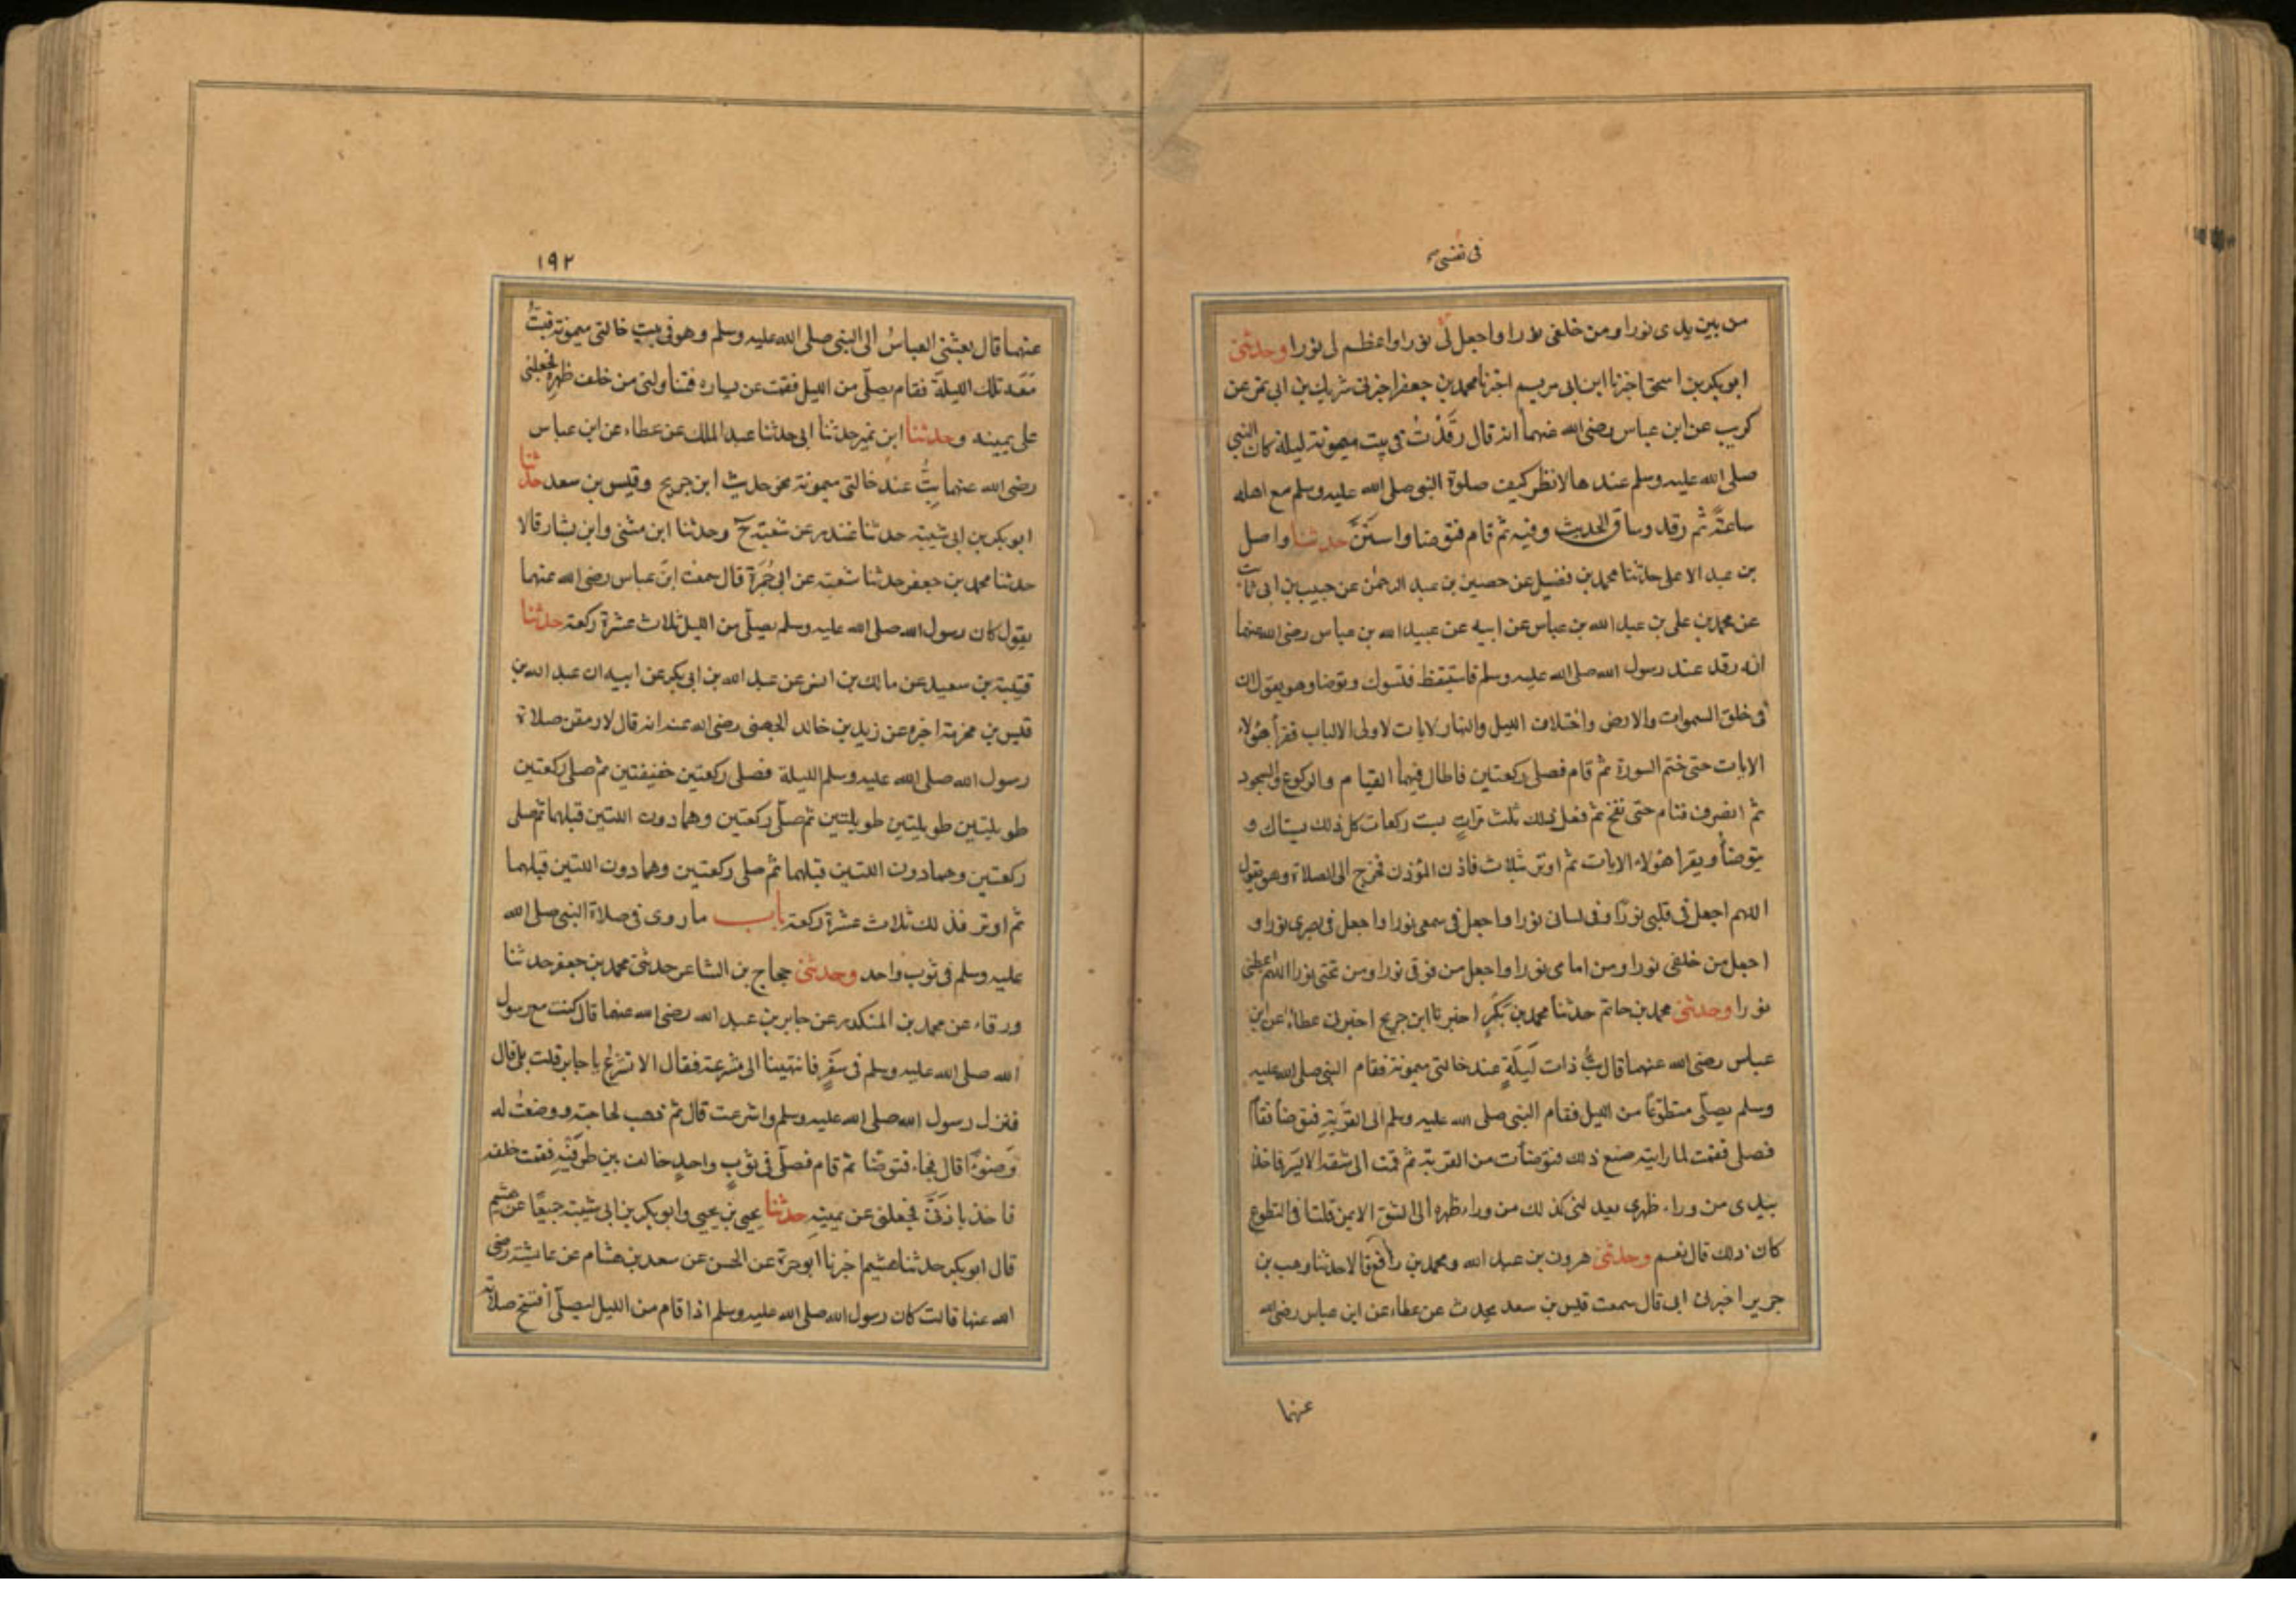 في نفسي
من بين يدي نورا ومن خلفي نورا واجعل لي نورا واعظم لي نورا وحدثني
ابو بكر بن اسحق اخبرنا ابن ابي مريم اخبرنا محمد بن جعفر اخبرني شريك بن ابي نمر عن
كريب عن ابن عباس رضي الله عنهما انه قال رَقَدْتُ في بيت ميمونة ليلة كان النبي
صلى الله عليه وسلم عندها لانظر كيف صلوة النبي صلى الله عليه وسلم مع اهله
ساعةً ثم رقد وساق الحديث وفيه ثم قام فتوضا واستَنَّ حدثنا واصل
بن عبد الاعلى حدثنا محمد بن فضيل عن حصين بن عبد الرحمن عن حبيب بن ابي ثابت
عن محمد بن علي بن عبد الله بن عباس عن ابيه عن عبد الله بن عباس رضي الله عنهما
انه رقد عند رسول الله صلى الله عليه وسلم فاستيقظ فتسوك وتوضا وهو يقول ان
في خلق السموات والارض واختلاف الليل والنهار لايات لاولي الالباب فقرأ هؤلاء
الايات حتى ختم السورة ثم قام فصلى ركعتين فاطال فيهما القيام والركوع والسجود
ثم انصرف فنام حتى نفخ ثم فعل ذلك ثلث مرات ست ركعات كل ذلك يستاك و
يتوضأ ويقرا هؤلاء الايات ثم اوتر بثلاث فاذن المؤذن فخرج الى الصلاة وهو يقول
اللهم اجعل في قلبي نورًا وفي لساني نورا واجعل في سمعي نورا واجعل في بصري نورا و
اجعل من خلفي نورا ومن امامي نورا واجعل من فوقي نورا ومن تحتي نورا اللهم اعطني
نورا وحدثني محمد بن حاتم حدثنا محمد بن بَكْرٍ اخبرنا ابن جريج اخبرني عطاء عن ابن
عباس رضي الله عنهما قال بتُّ ذات لَيلَةٍ عند خالتي ميمونة فقام النبي صلى الله عليه
وسلم يصلّي متطوّعًا من الليل فقام النبي صلى الله عليه وسلم الى القِرْبَةِ فتوضأ فقام
فصلى فقمت لما رايته صنع ذلك فتوضأت من القربة ثم قمت الى شقه الايسر فاخذ
بيدي من وراء ظهري يعدلني كذلك من وراء ظهره الى الشق الايمن قلت أفي التطوع
كان ذلك قال نعم وحدثني هرون بن عبد الله ومحمد بن رافع قالا حدثنا وهب بن
جرير اخبرني ابي قال سمعت قيس بن سعد يحدث عن عطاء عن ابن عباس رضي الله
عنهما
١٩٢
عنهما قال بعثني العباسُ الى النبي صلى الله عليه وسلم وهو في بيت خالتي ميمونة فبتُّ
مَعَه تلك الليلةَ فقام يصلّي من الليل فقمت عن يساره فتناولني من خلف ظهره فجعلني
على يمينه وحدثنا ابن نمير حدثنا ابي حدثنا عبد الملك عن عطاء عن ابن عباس
رضي الله عنهما بِتُّ عند خالتي ميمونة نحو حديث ابن جريج وقيس بن سعد حدثنا
ابو بكر بن ابي شيبة حدثنا غندر عن شعبة ح وحدثنا ابن مثنى وابن بشار قالا
حدثنا محمد بن جعفر حدثنا شعبة عن ابي جَمْرَة قال سمعت ابن عباس رضي الله عنهما
يقول كان رسول الله صلى الله عليه وسلم يصلّي من الليل ثلاث عشرة ركعة حدثنا
قتيبة بن سعيد عن مالك بن انس عن عبد الله بن ابي بكر عن ابيه ان عبد الله بن
قيس بن مخرمة اخبره عن زيد بن خالد الجهني رضي الله عنه انه قال لارمقن صلاة
رسول الله صلى الله عليه وسلم الليلة فصلى ركعتين خفيفتين ثم صلى ركعتين
طويلتين طويلتين طويلتين ثم صلّى ركعتين وهما دون اللتين قبلهما ثم صلى
ركعتين وهما دون اللتين قبلهما ثم صلى ركعتين وهما دون اللتين قبلهما
ثم اوتر فذلك ثلاث عشرة ركعة باب ما روي في صلاة النبي صلى الله
عليه وسلم في ثوب واحد وحدثني حجاج بن الشاعر حدثني محمد بن جعفر حدثنا
ورقاء عن محمد بن المنكدر عن جابر بن عبد الله رضي الله عنهما قال كنت مع رسول
الله صلى الله عليه وسلم في سَفَرٍ فانتهينا الى مشرعة فقال الا تشرع يا جابر قلت بلى قال
فنزل رسول الله صلى الله عليه وسلم واشرعت قال ثم ذهب لحاجته ووضعتُ له
وَضوءًا قال فجاء فتوضّأ ثم قام فصلّى في ثوبٍ واحدٍ خالف بين طرفَيْهِ فقمت خلفه
فاخذ باذني فجعلني عن يمينه حدثنا يحيى بن يحيى وابو بكر بن ابي شيبة جميعًا عن هشيم
قال ابو بكر حدثنا هشيم اخبرنا ابو حرة عن الحسن عن سعد بن هشام عن عايشة رضي
الله عنها قالت كان رسول الله صلى الله عليه وسلم اذا قام من الليل ليصلّي افتتح صلاته